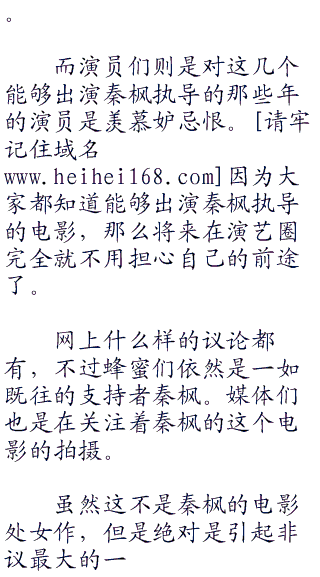 。
而演员们则是对这几个
能够出演秦枫执导的那些年
的演员是羡慕妒忌恨。[请牢
记住域名
www.heihei168.com]因为大
家都知道能够出演秦枫执导
的电影，那么将来在演艺圈
完全就不用担心自己的前途
了。
网上什么样的议论都
有，不过蜂蜜们依然是一如
既往的支持者秦枫。媒体们
也是在关注着秦枫的这个电
影的拍摄。
虽然这不是秦枫的电影
处女作，但是绝对是引起非
议最大的一